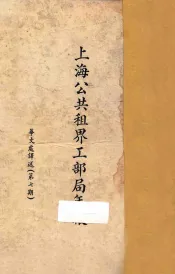 上海公共租界工部局年
華文處譯述(第七期)